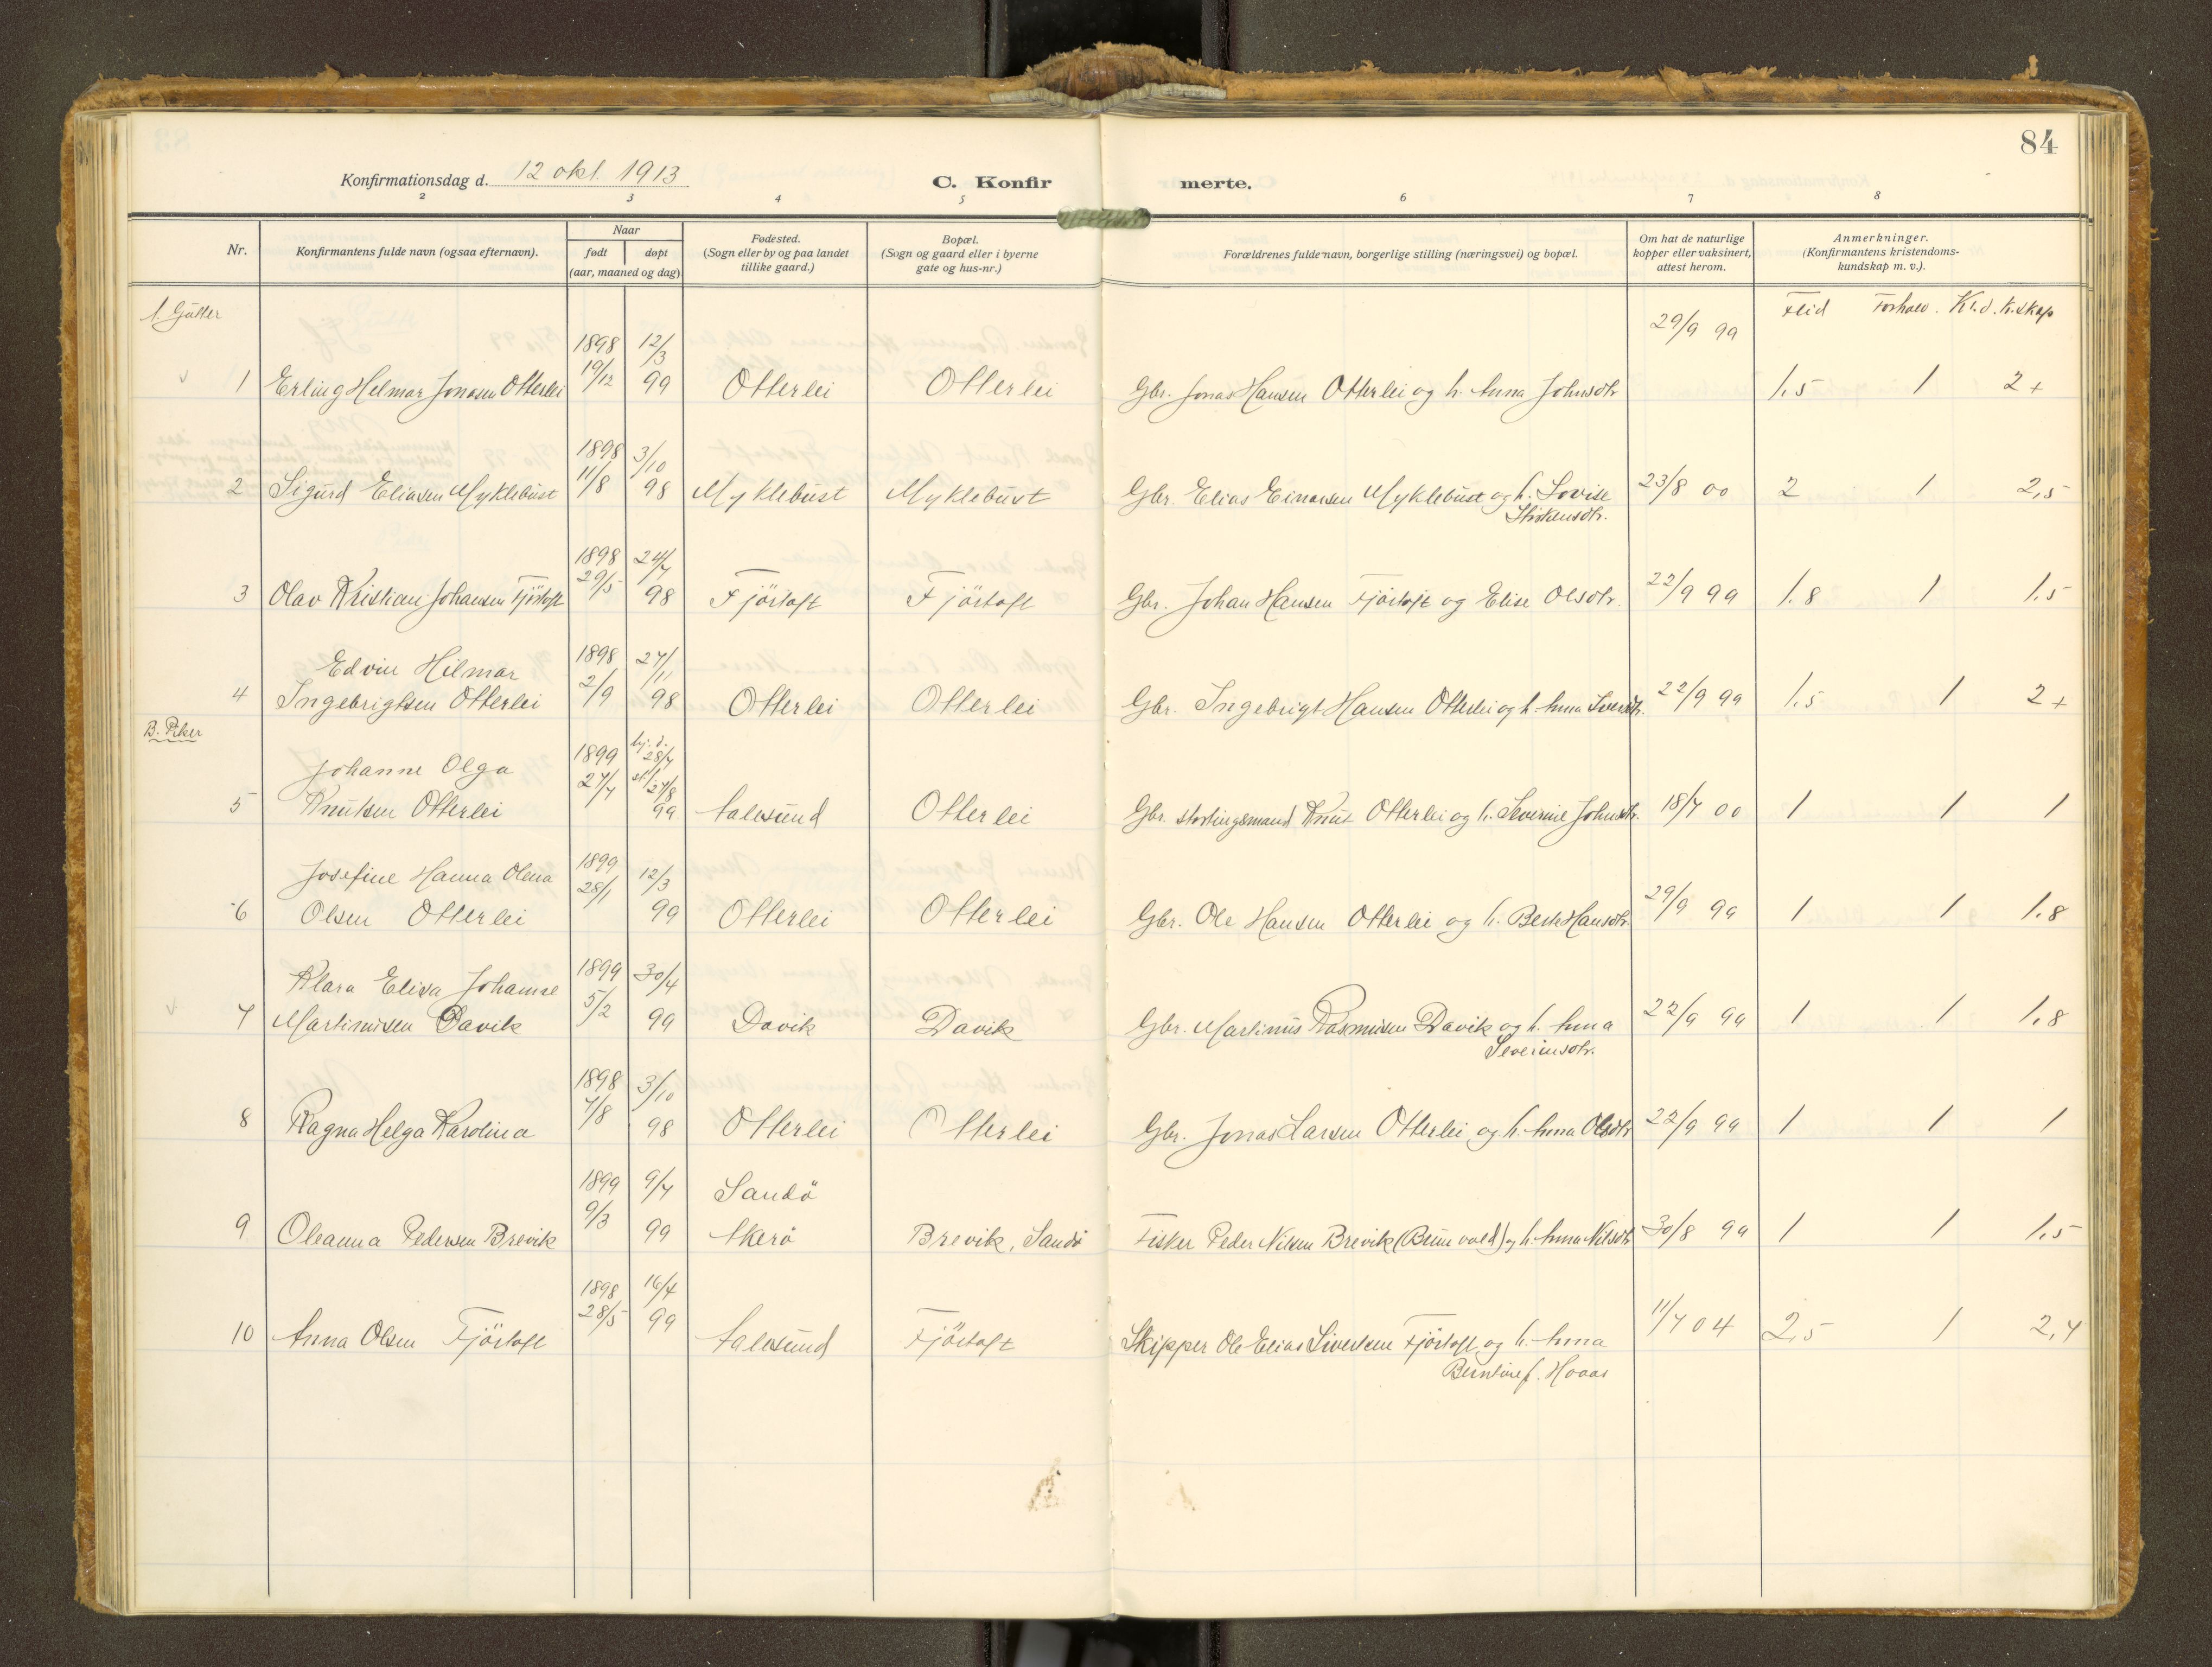 84
Konfirmationsdag d. 12 okt. 1913
C. Konfir merte.
2 3 4 5 6 7 8
Nr.
Konfirmantens fulde navn (ogsaa efternavn).
Naar
født døpt
(aar, maaned og dag)
Fødested.
(Sogn eller by og paa landet
tillike gaard.)
Bopæl.
(Sogn og gaard eller i byerne
gate og hus-nr.)
Forældrenes fulde navn, borgerlige stilling (næringsvei) og bopæl.
Om hat de naturlige
kopper eller vaksinert,
attest herom.
Anmerkninger.
(Konfirmantens kristendoms-
kundskap m. v.).
A. Gutter
Flid Forhold. Kr.d.k.skap
1898 12/3 29/9 99
1 Erling Helmar Jonasen Otterlei 19/12 99 Otterlei Otterlei Gbr. Jonas Hansen Otterlei og h. Anna Johnsdtr 1,5 1 2+
1898 3/10
2 Sigurd Eliasen Myklebust 11/8 98 Myklebust Myklebust Gbr. Elias Einarsen Myklebust og h. Lovise 23/8 00 2 1 2,5
1898 24/7
3 Olav Kristian Johansen Fjörtoft 29/5 98 Fjörtoft Fjörtoft Gbr. Johan Hansen Fjörtoft og Elise Olsdtr. 22/9 99 1.8 1 1.5
Edvin Hilmar 1898 27/11
4 Ingebrigtsen Otterlei 2/9 98 Otterlei Otterlei Gbr. Ingebrigt Hansen Otterlei og h. Anna 22/9 99 1.5 1 2+
B. Piker
Johanne Olga 1899 hj.d. 28/7
27/7 st. 27/8
5 Knutsen Otterlei 99 Aalesund Otterlei Gbr. stortingsmand Knut Otterlei og h. Severine Johnsdtr. 18/7 00 1 1 1
Josefine Hanna Olena 1899 12/3
6 Olsen Otterlei 28/1 99 Otterlei Otterlei Gbr. Ole Hansen Otterlei og h. Berte Hansdtr. 29/9 99 1 1 1.8
Klara Elisa Johanne 1899 30/4
7 Martinusen Davik 5/2 99 Davik Davik Gbr. Martinus Rasmusen Davik og h. Anna 22/9 99 1 1 1.8
Severinsdtr.
1898 3/10
8 Ragna Helga Karolina 7/8 98 Otterlei Otterlei Gbr. Jonas Larsen Otterlei og h. Anna Olsdtr 22/9 99 1 1 1
1899 9/7 Sandö
9 Oleanna Pedersen Brevik 9/3 99 Akerö Brevik, Sandö Fisker Peder Nilsen Brevik og h. Anna Nilsdtr 30/8 99 1 1 1.5
1898 16/4
10 Anna Olsen Fjörtoft 28/5 99 Aalesund Fjörtoft Skipper Ole Elias Sivertsen Fjörtoft og h. Anna 11/7 04 2,5 1 2,7
Berntine f. Haaas